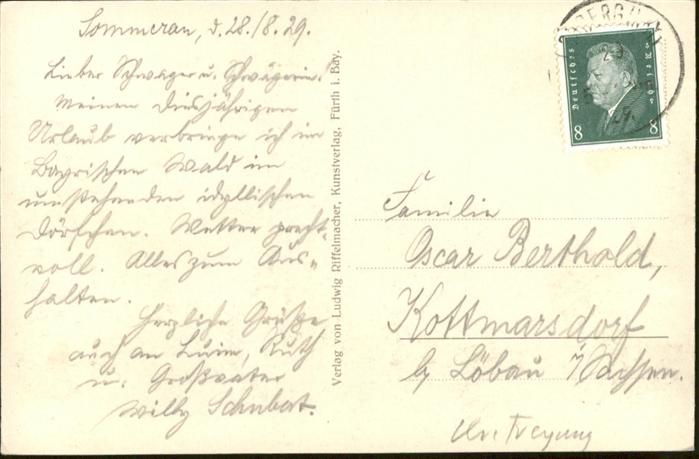 Sommerau, d. 28./8. 29.
Lieber Schwager u. Schwägerin!
Meinen diesjährigen
Urlaub verbringe ich im
Bayrischen Wald im
umstehenden idyllischen
Dörfchen. Wetter pracht-
voll. Alles zum Aus-
halten.
Herzliche Grüße
auch an Luise, Ruth
u. Großvater
Willy Schubert.
Verlag von Ludwig Riffelmacher, Kunstverlag, Fürth i. Bay.
Deutsches Reich
8 8
Familie
Oscar Berthold,
Kottmarsdorf
b/ Löbau i/Sachsen.